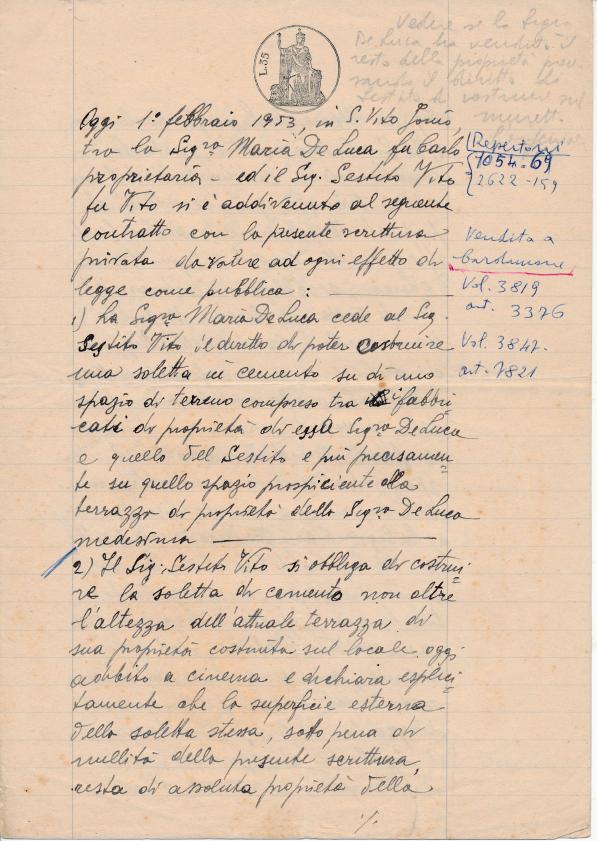 Vedere se la Sigra
De Luca ha venduto il
resto della proprietà
il diritto
Sestito di costruire sul
muretto
L. 35
Oggi 1° febbraio 1953, in S. Vito Jonio,
tra la Sigra Maria De Luca fu Carlo
proprietaria - ed il Sig. Sestito Vito
fu Vito si è addivenuto al seguente
contratto con la presente scrittura
privata da valere ad ogni effetto di
legge come pubblica :
1) La Sigra Maria De Luca cede al Sig.
Sestito Vito il diretto di poter costruire
una soletta in cemento su di uno
spazio di terreno compreso tra i fabbri-
cati di proprietà di essa Sigra De Luca
e quello del Sestito e più precisamen-
te su quello spazio prospiciente alla
terrazza di proprietà della Sigra De Luca
medesima
2) Il Sig. Sestito Vito si obbliga di costrui-
re la soletta di cemento non oltre
l'altezza dell'attuale terrazza di
sua proprietà costruita sul locale oggi
adibito a cinema e dichiara esplici-
tamente che la superficie esterna
della soletta stessa, sotto pena di
nullità della presente scrittura,
resta di assoluta proprietà della
./.
Repertori
7054-69
2622-159
Vendita a
Vol. 3819
art. 3376
Vol. 3847-
art. 7821